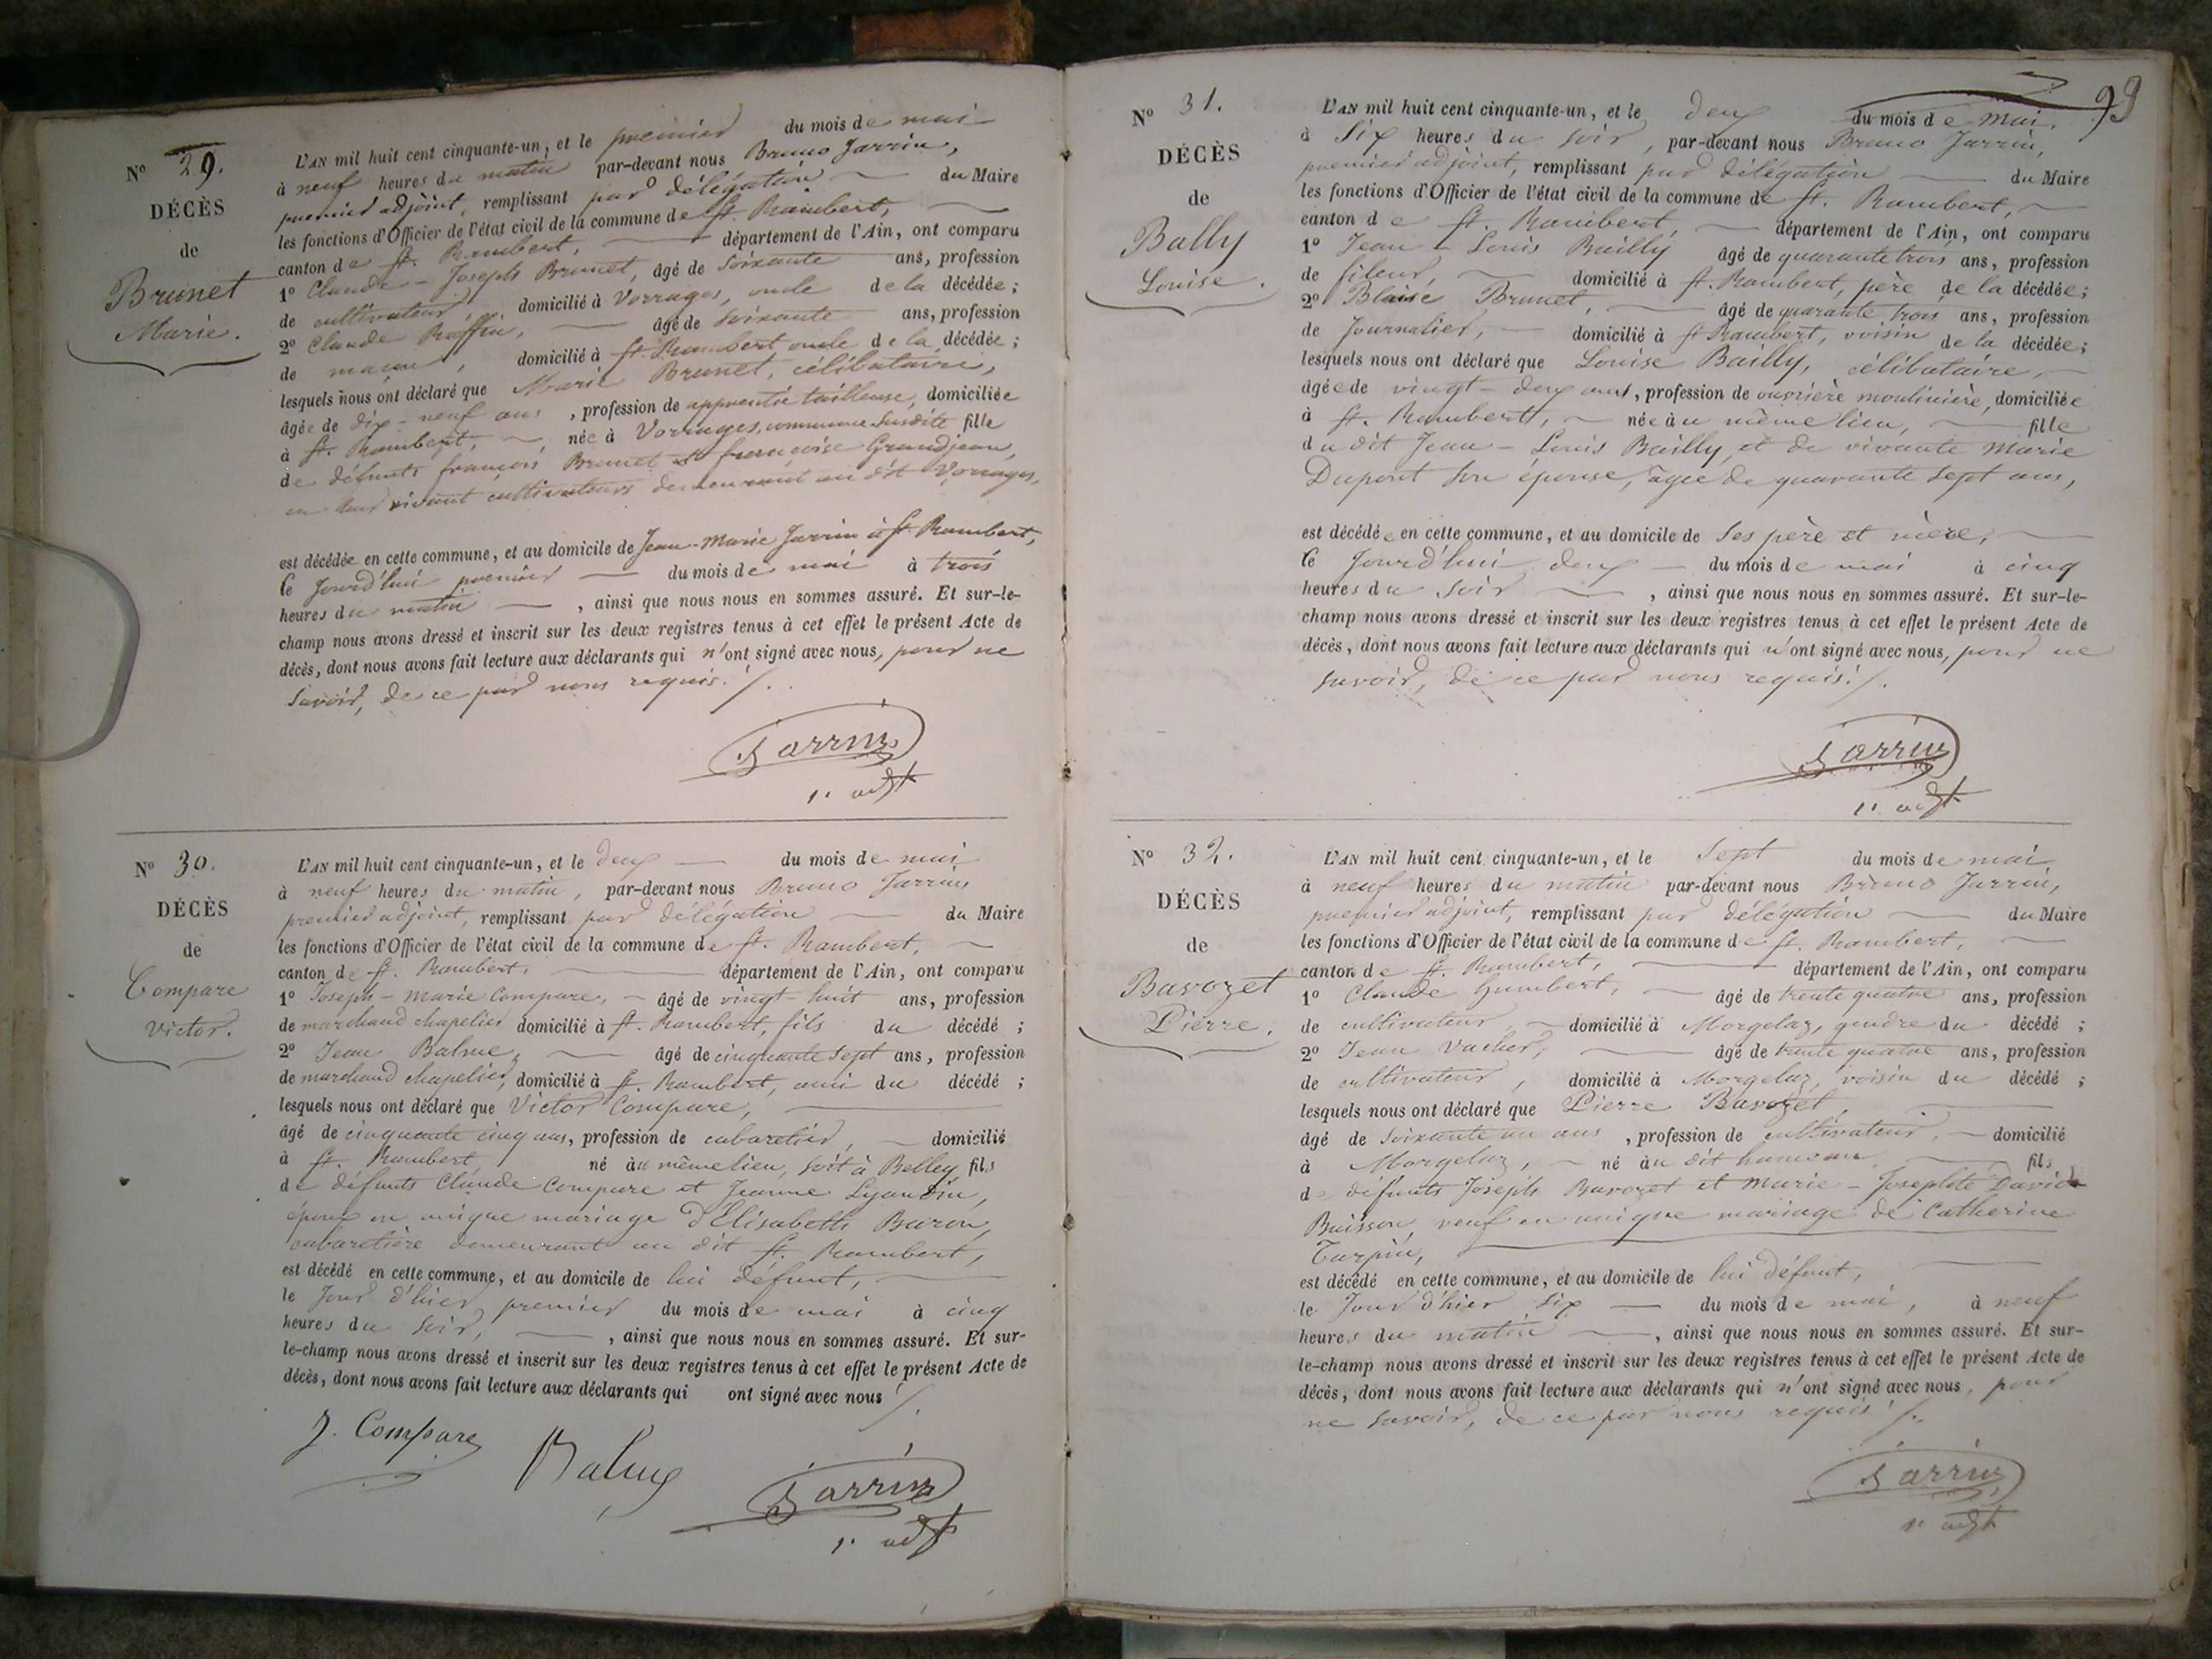 N° 29.
DÉCÈS
de
Brunet
Marie.
L'AN mil huit cent cinquante-un, et le premier du mois de mai
à neuf heures du matin par-devant nous Bruno Jarrin,
premier adjoint, remplissant par délégation du Maire
les fonctions d'Officier de l'état civil de la commune de St. Rambert,
canton de St. Rambert, département de l'Ain, ont comparu
1° Claude-Joseph Brunet, âgé de soixante ans, profession
de cultivateur, domicilié à Vorrages, oncle de la décédée;
2° Claude Roffin, âgé de soixante ans, profession
de maçon, domicilié à St Rambert oncle de la décédée;
lesquels nous ont déclaré que Marie Brunet, célibataire,
âgée de dix-neuf ans, profession de apprentie tailleuse, domiciliée
à St. Rambert, née à Vorrages, commune susdite fille
de défunts françois Brunet et françoise Grandjean,
en leur vivant cultivateurs demeurant au dit Vorrages,
est décédée en cette commune, et au domicile de Jean-Marie Jarrin à St. Rambert,
le Jourd'hui premier du mois de mai à trois
heures du matin, ainsi que nous nous en sommes assuré. Et sur-le-
champ nous avons dressé et inscrit sur les deux registres tenus à cet effet le présent Acte de
décès, dont nous avons fait lecture aux déclarants qui n'ont signé avec nous, pour ne
savoir, de ce par nous requis./.
Jarrin
1r adjt
N° 30.
DÉCÈS
de
Compare
Victor.
L'AN mil huit cent cinquante-un, et le deux du mois de mai
à neuf heures du matin, par-devant nous Bruno Jarrin,
premier adjoint, remplissant par délégation du Maire
les fonctions d'Officier de l'état civil de la commune de St. Rambert,
canton de St. Rambert, département de l'Ain, ont comparu
1° Joseph-Marie Compare, âgé de vingt-huit ans, profession
de marchand chapelier domicilié à St. Rambert, fils du décédé;
2° Jean Balme, âgé de cinquante sept ans, profession
de marchand chapelier, domicilié à St. Rambert, ami du décédé;
lesquels nous ont déclaré que Victor Compare,
âgé de cinquante cinq ans, profession de cabaretier, domicilié
à St. Rambert né au même lieu, soit à Belley fils
de défunts Claude Compare et Jeanne Lyaudin,
époux en unique mariage d'Elisabeth Baron,
cabaretière demeurant au dit St. Rambert,
est décédé en cette commune, et au domicile de lui défunt,
le Jour d'hier, premier du mois de mai à cinq
heures du soir, ainsi que nous nous en sommes assuré. Et sur-
le-champ nous avons dressé et inscrit sur les deux registres tenus à cet effet le présent Acte de
décès, dont nous avons fait lecture aux déclarants qui ont signé avec nous/.
J. Compare
Balme
Jarrin
1r adjt
99
N° 31.
DÉCÈS
de
Bally
Louise.
L'AN mil huit cent cinquante-un, et le deux du mois de Mai.
à Six heures du soir, par-devant nous Bruno Jarrin,
premier adjoint, remplissant par délégation du Maire
les fonctions d'Officier de l'état civil de la commune de St. Rambert,
canton de St. Rambert, département de l'Ain, ont comparu
1° Jean-Louis Bailly âgé de quarante trois ans, profession
de fileur, domicilié à St. Rambert, père de la décédée;
2° Blaise Brunet, âgé de quarante trois ans, profession
de Journalier, domicilié à St Rambert, voisin de la décédée;
lesquels nous ont déclaré que Louise Bailly, célibataire,
âgée de vingt-deux ans, profession de ouvrière moulinière, domiciliée
à St. Rambert, née au même lieu, fille
du dit Jean-Louis Bailly, et de vivante Marie
Dupont son épouse, âgée de quarante sept ans,
est décédée en cette commune, et au domicile de ses père et mère,
le Jourd'hui deux du mois de mai à cinq
heures du soir, ainsi que nous nous en sommes assuré. Et sur-le-
champ nous avons dressé et inscrit sur les deux registres tenus à cet effet le présent Acte de
décès, dont nous avons fait lecture aux déclarants qui n'ont signé avec nous, pour ne
savoir, de ce par nous requis./.
Jarrin
1r adjt
N° 32.
DÉCÈS
de
Bavozet
Pierre.
L'AN mil huit cent cinquante-un, et le Sept du mois de mai
à neuf heures du matin par-devant nous Bruno Jarrin,
premier adjoint, remplissant par délégation du Maire
les fonctions d'Officier de l'état civil de la commune de St. Rambert,
canton de St. Rambert, département de l'Ain, ont comparu
1° Claude Humbert, âgé de trente quatre ans, profession
de cultivateur domicilié à Morgelaz, gendre du décédé;
2° Jean Vacher, âgé de trente quatre ans, profession
de cultivateur, domicilié à Morgelaz, voisin du décédé;
lesquels nous ont déclaré que Pierre Bavozet,
âgé de soixante un ans, profession de cultivateur, domicilié
à Morgelaz, né au dit hameau fils
de défunts Joseph Bavozet et Marie-Josephte David
Buisson, veuf en unique mariage de Catherine
Turpin,
est décédé en cette commune, et au domicile de lui défunt,
le Jour d'hier six du mois de mai, à neuf
heures du matin, ainsi que nous nous en sommes assuré. Et sur-
le-champ nous avons dressé et inscrit sur les deux registres tenus à cet effet le présent Acte de
décès, dont nous avons fait lecture aux déclarants qui n'ont signé avec nous, pour
ne savoir, de ce par nous requis/.
Jarrin
1r adjt